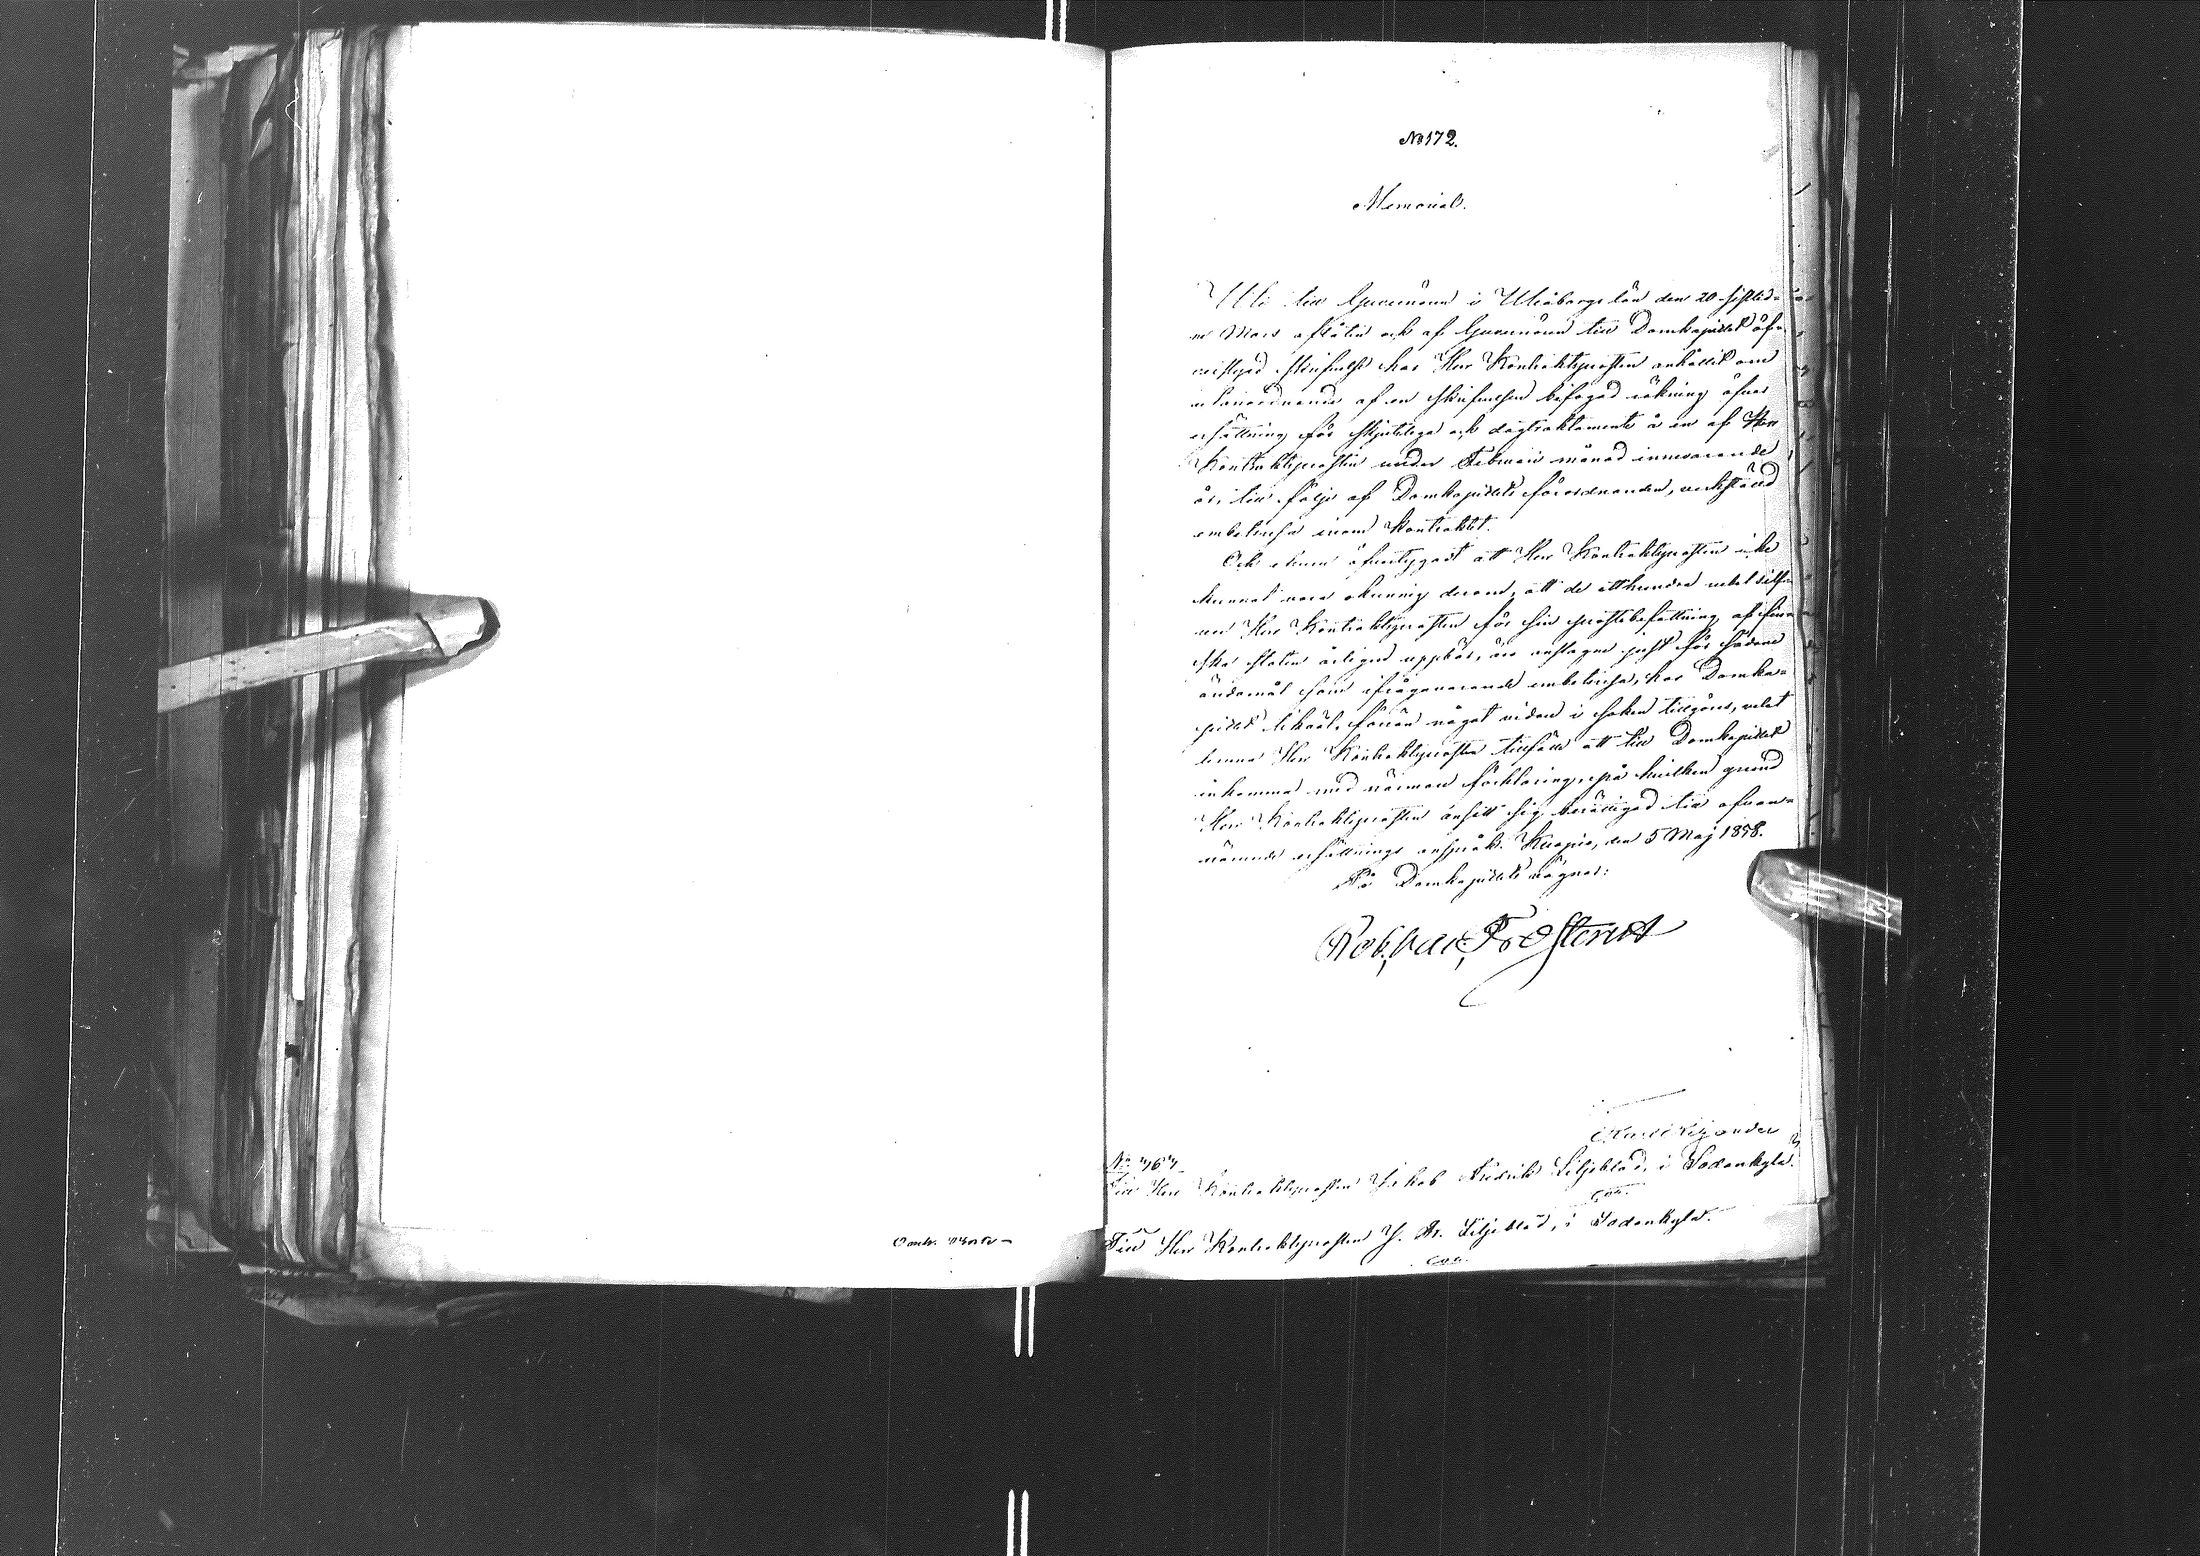 № 172.
Memorial.
Uti till Guvernören i Uleåborgs län den 20 sistled-
ne Mars aflåten och af Guvernören till Domkapitlet öfver-
remitterad skrifvelse har Herr Kontraktsprosten anhållit om
af en skrifvelsen bifogad räkning öfver
ersättning för skjutslega och dagtraktamente å en af Herr
Kontraktsprosten under Februari månad innevarande
år, till följe af Domkapitlets förordnande, verkställd
embetsresa inom Kontraktet.
Och ehuru öfvertygadt att Herr Kontraktsprosten icke
kunnat vara okunnig derom, att de etthundra rubel silfver
Herr Kontraktsprosten för sin prostebefattning af fin-
ska staten årligen uppbär, äro anslagne just för sådane
ändamål som ifrågavarande embetsresa, har Domka-
pitlet likväl, förrän något vidare i saken tillgöres, velat
lemna Herr Kontraktsprosten tillfälle att till Domkapitlet
inkomma med närmare förklaring, på hvilken grund
Herr Kontraktsprosten ansett sig berättigad till ofvan-
nämnde ersättnings anspråk. Kuopio, den 5 Maj 1858.
På Domkapitlets vägnar:
Rob. Val. Frosterus
Kiljander
№ 767
Till Herr Kontraktsprosten Jakob Fredrik Liljeblad, i Sodankylä.
Till Herr Kontraktsprosten J. Fr. Liljeblad, i Sodankylä.